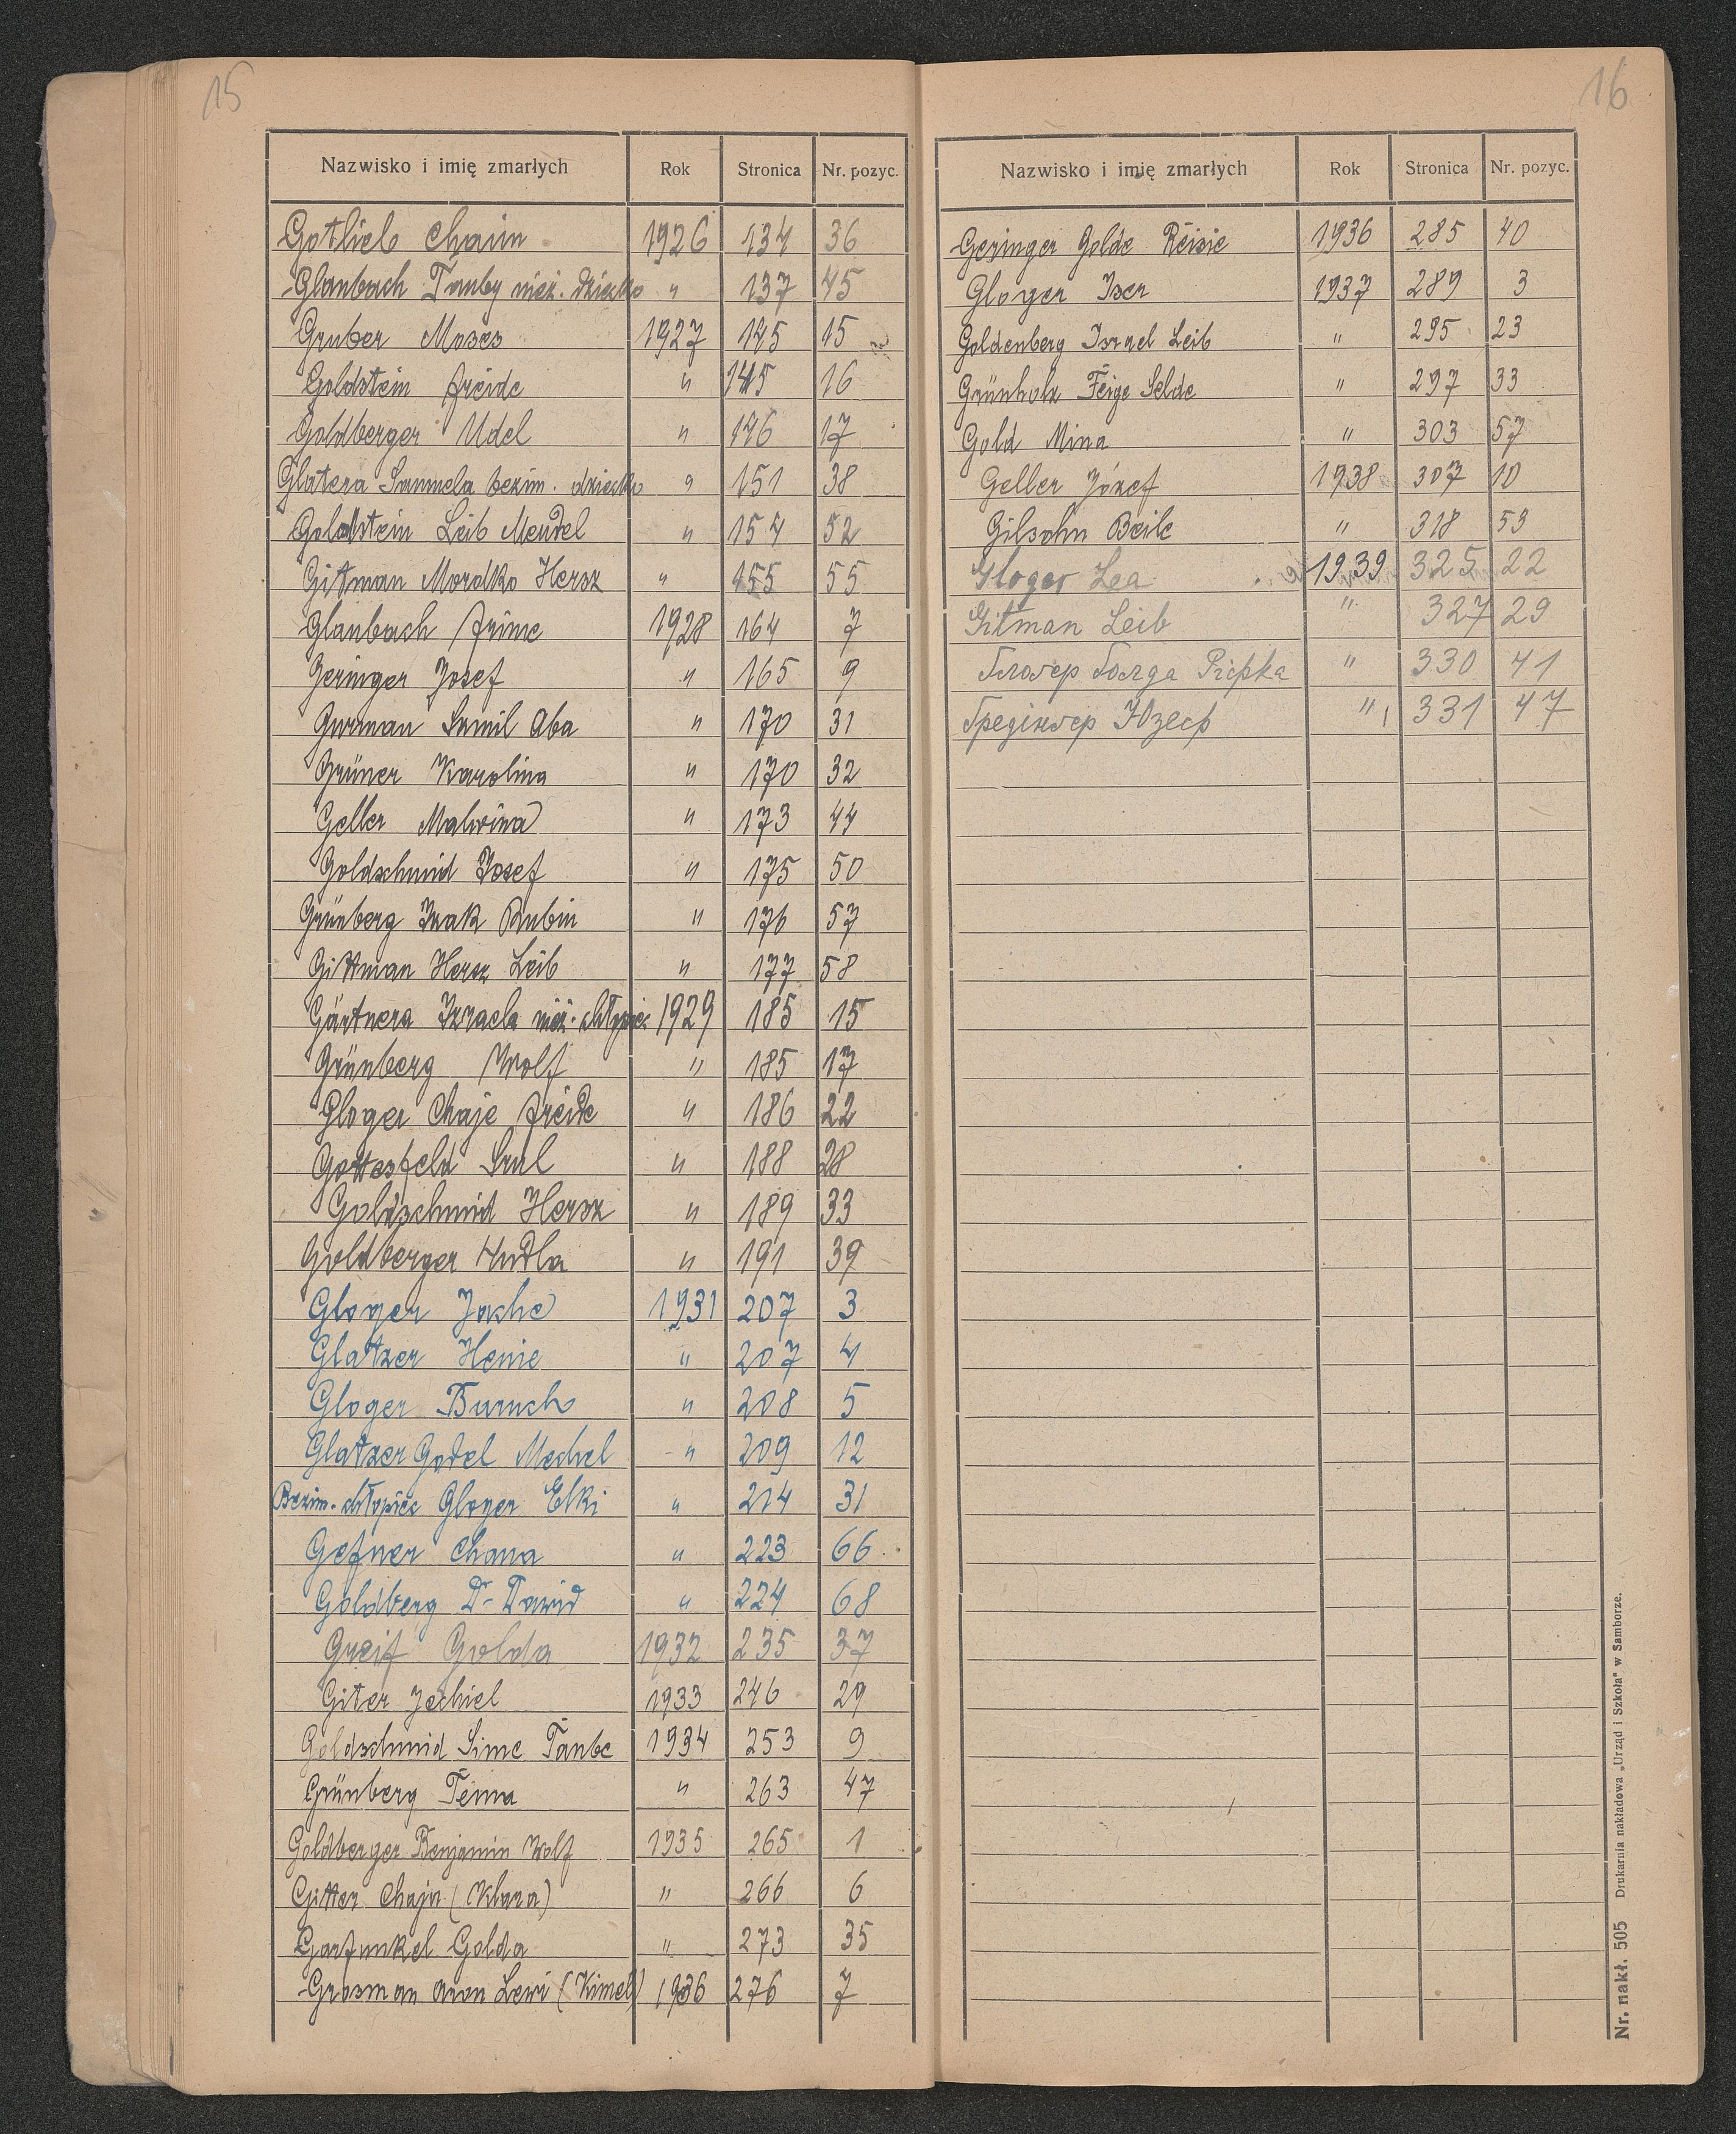 15
Nazwisko i imię zmarłych Rok Stronica Nr. pozyc.
Gotlieb Chaim 1926 134 36
Glanbach Tauby nież. dziecko " 137 45
Gruber Moses 1927 145 15
Goldstein Freide " 145 16
Goldberger Udel " 146 17
Glatera Samuela bezim. dziecko " 151 38
Goldstein Leib Mendel " 154 52
Gitman Mordko Hersz " 155 55
Glanbach Frime 1928 164 7
Geringer Josef " 165 9
Gurman Srmil Aba " 170 31
Grüner Karolina " 170 32
Geller Malwina " 173 44
Goldschmid Josef " 175 50
Grünberg Izak Rubin " 176 57
Gittman Hersz Leib " 177 58
Gärtnera Izraela nież. chłopiec 1929 185 15
Grünberg Wolf " 185 17
Gloger Chaje Freide " 186 22
Gottesfeld Srul " 188 28
Goldschmid Hersz " 189 33
Goldberger Hudla " 191 39
Gloger Joshe 1931 207 3
Glatzer Henie " 207 4
Gloger Baruch " 208 5
Glatzer Godel Mechel " 209 12
Bezim. chłopiec Gloger Elki " 214 31
Gefner Chana " 223 66
Goldberg Dr Dawid " 224 68
Greif Golda 1932 235 37
Giter Jechiel 1933 246 29
Goldschmid Sime Taube 1934 253 9
Grünberg Tema " 263 47
Goldberger Benjamin Wolf 1935 265 1
Gitter Chaja (Klara) " 266 6
Garfunkel Golda " 273 35
Grosman Aron Lewi (Kimel) 1936 276 7
16
Nazwisko i imię zmarłych Rok Stronica Nr. pozyc.
Geringer Golde Reisie 1936 285 40
Gloger Iser 1937 289 3
Goldenberg Israel Leib " 295 23
Grünholz Feige Selde " 297 33
Gold Mina " 303 57
Geller Józef 1938 307 10
Gilsohn Beile " 318 53
Gloger Lea 1939 325 22
Gitman Leib " 327 29
Глогер Голда Ріфка " 330 41
Гредінгер Юзеф " 331 47
Nr. nakł. 505 Drukarnia nakładowa „Urząd i Szkoła" w Samborze.